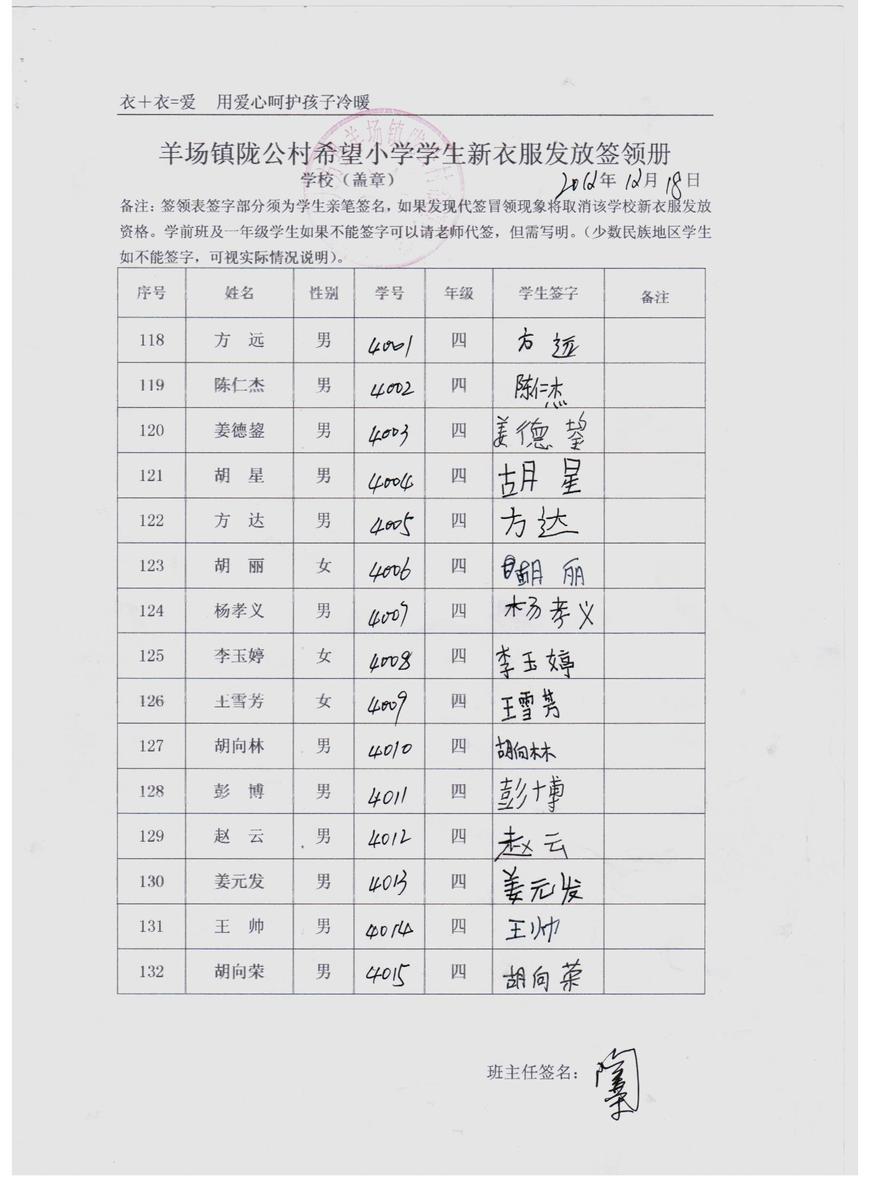 衣+衣=爱 用爱心呵护孩子冷暖
羊场镇陇公村希望小学学生新衣服发放签领册
学校（盖章） 2012年12月18日
备注：签领表签字部分须为学生亲笔签名，如果发现代签冒领现象将取消该学校新衣服发放
资格。学前班及一年级学生如果不能签字可以请老师代签，但需写明。（少数民族地区学生
如不能签字，可视实际情况说明）。
序号 姓名 性别 学号 年级 学生签字 备注
118 方 远 男 4001 四 方 远
119 陈仁杰 男 4002 四 陈仁杰
120 姜德鋆 男 4003 四 姜德鋆
121 胡 星 男 4004 四 胡星
122 方 达 男 4005 四 方达
123 胡 丽 女 4006 四 胡丽
124 杨孝义 男 4007 四 杨孝义
125 李玉婷 女 4008 四 李玉婷
126 王雪芳 女 4009 四 王雪芳
127 胡向林 男 4010 四 胡向林
128 彭 博 男 4011 四 彭博
129 赵 云 男 4012 四 赵云
130 姜元发 男 4013 四 姜元发
131 王 帅 男 4014 四 王帅
132 胡向荣 男 4015 四 胡向荣
班主任签名：